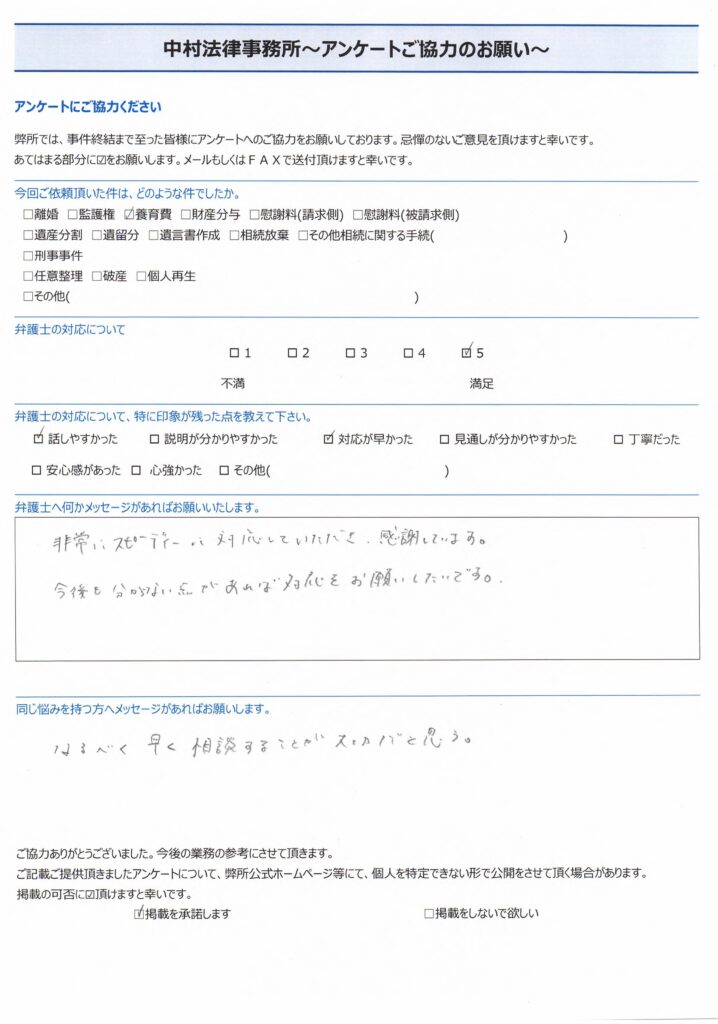 中村法律事務所～アンケートご協力のお願い～
アンケートにご協力ください
弊所では、事件終結まで至った皆様にアンケートへのご協力をお願いしております。忌憚のないご意見を頂けますと幸いです。
あてはまる部分に☑をお願いします。メールもしくはFAXで送付頂けますと幸いです。
今回ご依頼頂いた件は、どのような件でしたか。
□離婚 □監護権 ☑養育費 □財産分与 □慰謝料(請求側) □慰謝料(被請求側)
□遺産分割 □遺留分 □遺言書作成 □相続放棄 □その他相続に関する手続( )
□刑事事件
□任意整理 □破産 □個人再生
□その他( )
弁護士の対応について
□ 1 □ 2 □ 3 □ 4 ☑ 5
不満 満足
弁護士の対応について、特に印象が残った点を教えて下さい。
☑ 話しやすかった □ 説明が分かりやすかった ☑ 対応が早かった □ 見通しが分かりやすかった □ 丁寧だった
□ 安心感があった □ 心強かった □ その他( )
弁護士へ何かメッセージがあればお願いいたします。
非常にスピーディーに対応していただき、感謝しています。
今後も分からない点があれば対応をお願いしたいです。
同じ悩みを持つ方へメッセージがあればお願いします。
なるべく早く相談することが大切だと思う。
ご協力ありがとうございました。今後の業務の参考にさせて頂きます。
ご記載ご提供頂きましたアンケートについて、弊所公式ホームページ等にて、個人を特定できない形で公開をさせて頂く場合があります。
掲載の可否に☑頂けますと幸いです。
☑掲載を承諾します □掲載をしないで欲しい